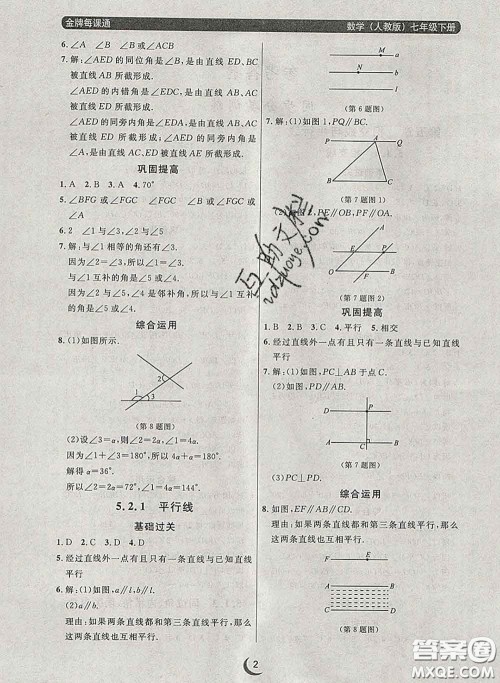 金牌每课通
数学（人教版）七年级下册
6. ∠A ∠B ∠B 或∠ACB
7. 解：∠AED 的同位角是∠ABC，是由直线 AB
被直线 AB 所截形成.
∠AED 的内错角是∠EDC，是由直线 DE 与
BC 被直线 DC 所截形成.
∠AED 的同旁内角是∠EDA，是由直线 AE
与 AD 被直线 ED 所截形成；∠AED 的同旁内角
是∠A，是由直线 DE 与 AD 被直线 AE 所截形成.
巩固提高
1. A 2. B 3. A 4. 70°
5. ∠BFG 或∠FGC ∠FGC ∠FGB 或
∠A
6. 2 ∠1 与∠2 ∠1 与∠5
7. 解：与∠1 相等的角还有∠3.
因为∠2=∠3，∠1=∠2，所以∠1=∠3.
与∠1 互补的角是∠4，∠5.
因为∠2 与∠4 是邻补角，所以∠1 与∠4 互补.
因为∠4=∠5，所以∠1 与∠5 互补.
综合运用
8. (1)如图所示.
2
1
3
（第 8 题图）
(2)设∠3=α，则∠2=2α，∠1=4α.
因为∠1+∠3=180°，所以 4α+α=180°.
解得 α=36°.
所以∠1=4α=144°.
5.2.1 平行线
基础过关
1. D 2. C 3. D 4. D
5. 经过直线外一点有且只有一条直线与已知直线
平行
6. 解：(1)如图，a∥l，b∥l.
(2)a∥b.
理由：如果两条直线都和第三条直线平行，那么
这两条直线也互相平行.
（第 6 题图）
7. 解：(1)如图 1，PQ∥BC.
A
Q
B
C
（第 7 题图 1）
(2)如图 2，PE∥OB，PF∥OA.
P
E
O
B
（第 7 题图 2）
巩固提高
1. B 2. D 3. C 4. 平行 5. 相交
6. 经过直线外一点有且只有一条直线与已知直线
平行
7. 解：(1)如图，PC⊥AB 于点 C.
(2)如图，PD∥AB.
D
P
A
C
B
（第 7 题图）
(3)PC⊥PD.
综合运用
8. 如图，EF∥AB，EF∥DC.
理由：如果两条直线都和第三条直线平行，那么
这两条直线也互相平行.
（第 8 题图）
2
互助文栏
zdzuoye.com
答案圈
MXQE.COM